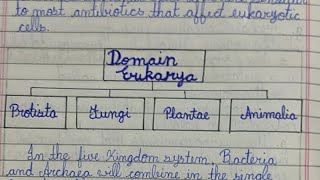 to most antibiotics that affect eukaryotic
cells.
Domain
Eukarya
Protista Fungi Plantae Animalia
In the five Kingdom system, Bacteria
and Archaea will combine in the single